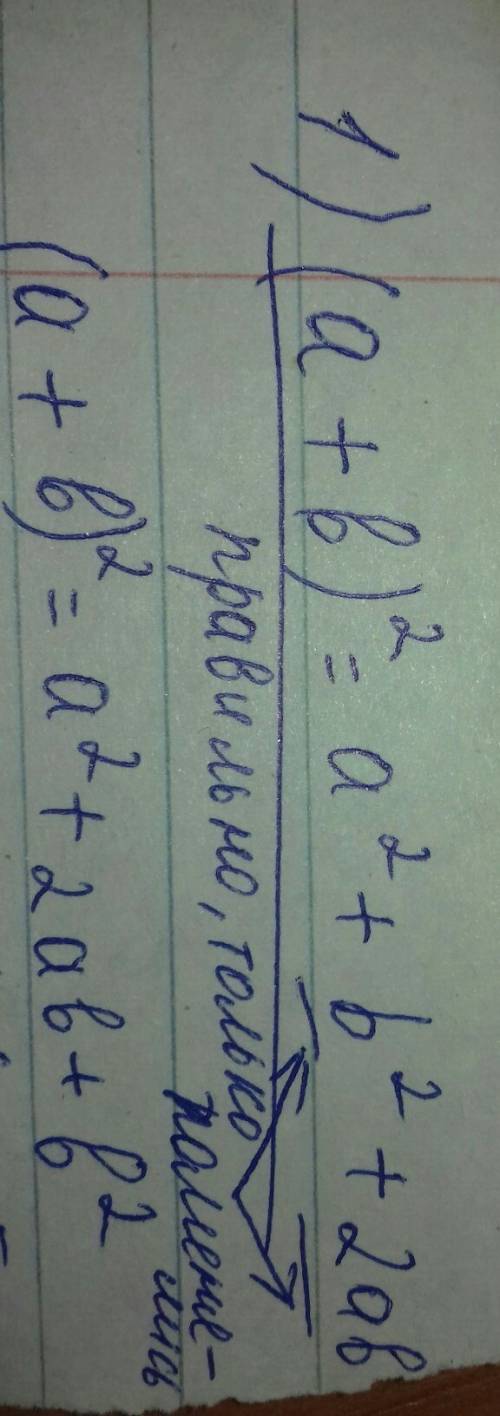 1) (a + b)² = a² + b² + 2ab
правильно, только
поменя-
лись
(a + b)² = a² + 2ab + b²